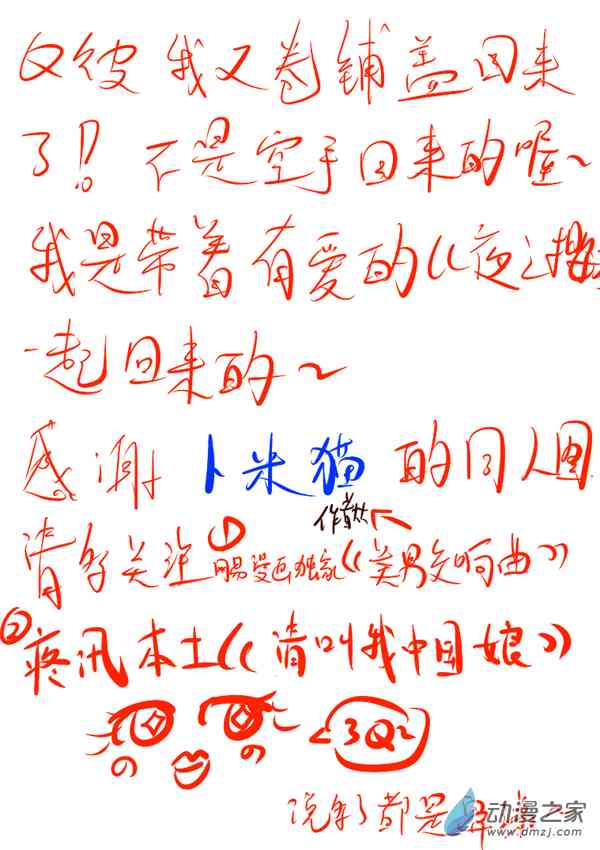 我又卷铺盖回来
了!! 不是空手回来的喔~
我是带着有爱的《夜之
一起回来的~
感谢 卜米猫 的同人图
作者大大
请多关注 ① 网易漫画独家《美男交响曲》
② 疼讯本土《请叫我中国娘》
<3Q>
都是
动漫之家
www.dmzj.com